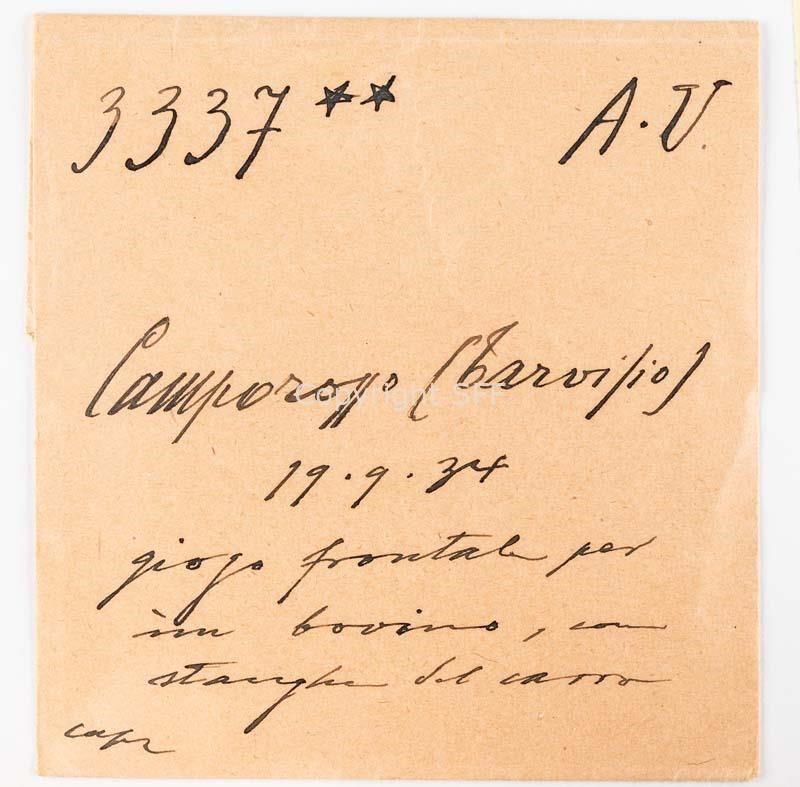 3337 ** A. V.
Camporosso (Tarvisio)
19.9.34
giogo frontale per
un bovino, con
stanghe del carro
Copyright SFF